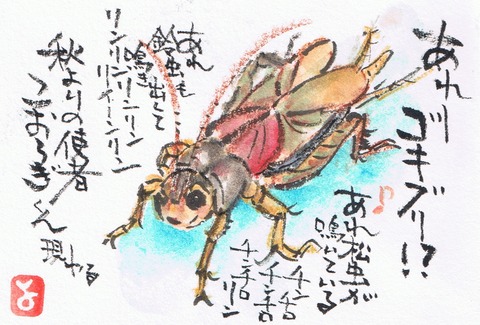 あれ!! ゴキブリ!?
あれ松虫が
鳴いている
チンチロ
チンチロ
チンチロリン
あれ
鈴虫も
鳴き出して
リンリンリンリン
リイーンリン
秋よりの使者
こおろぎくん 現わる
と